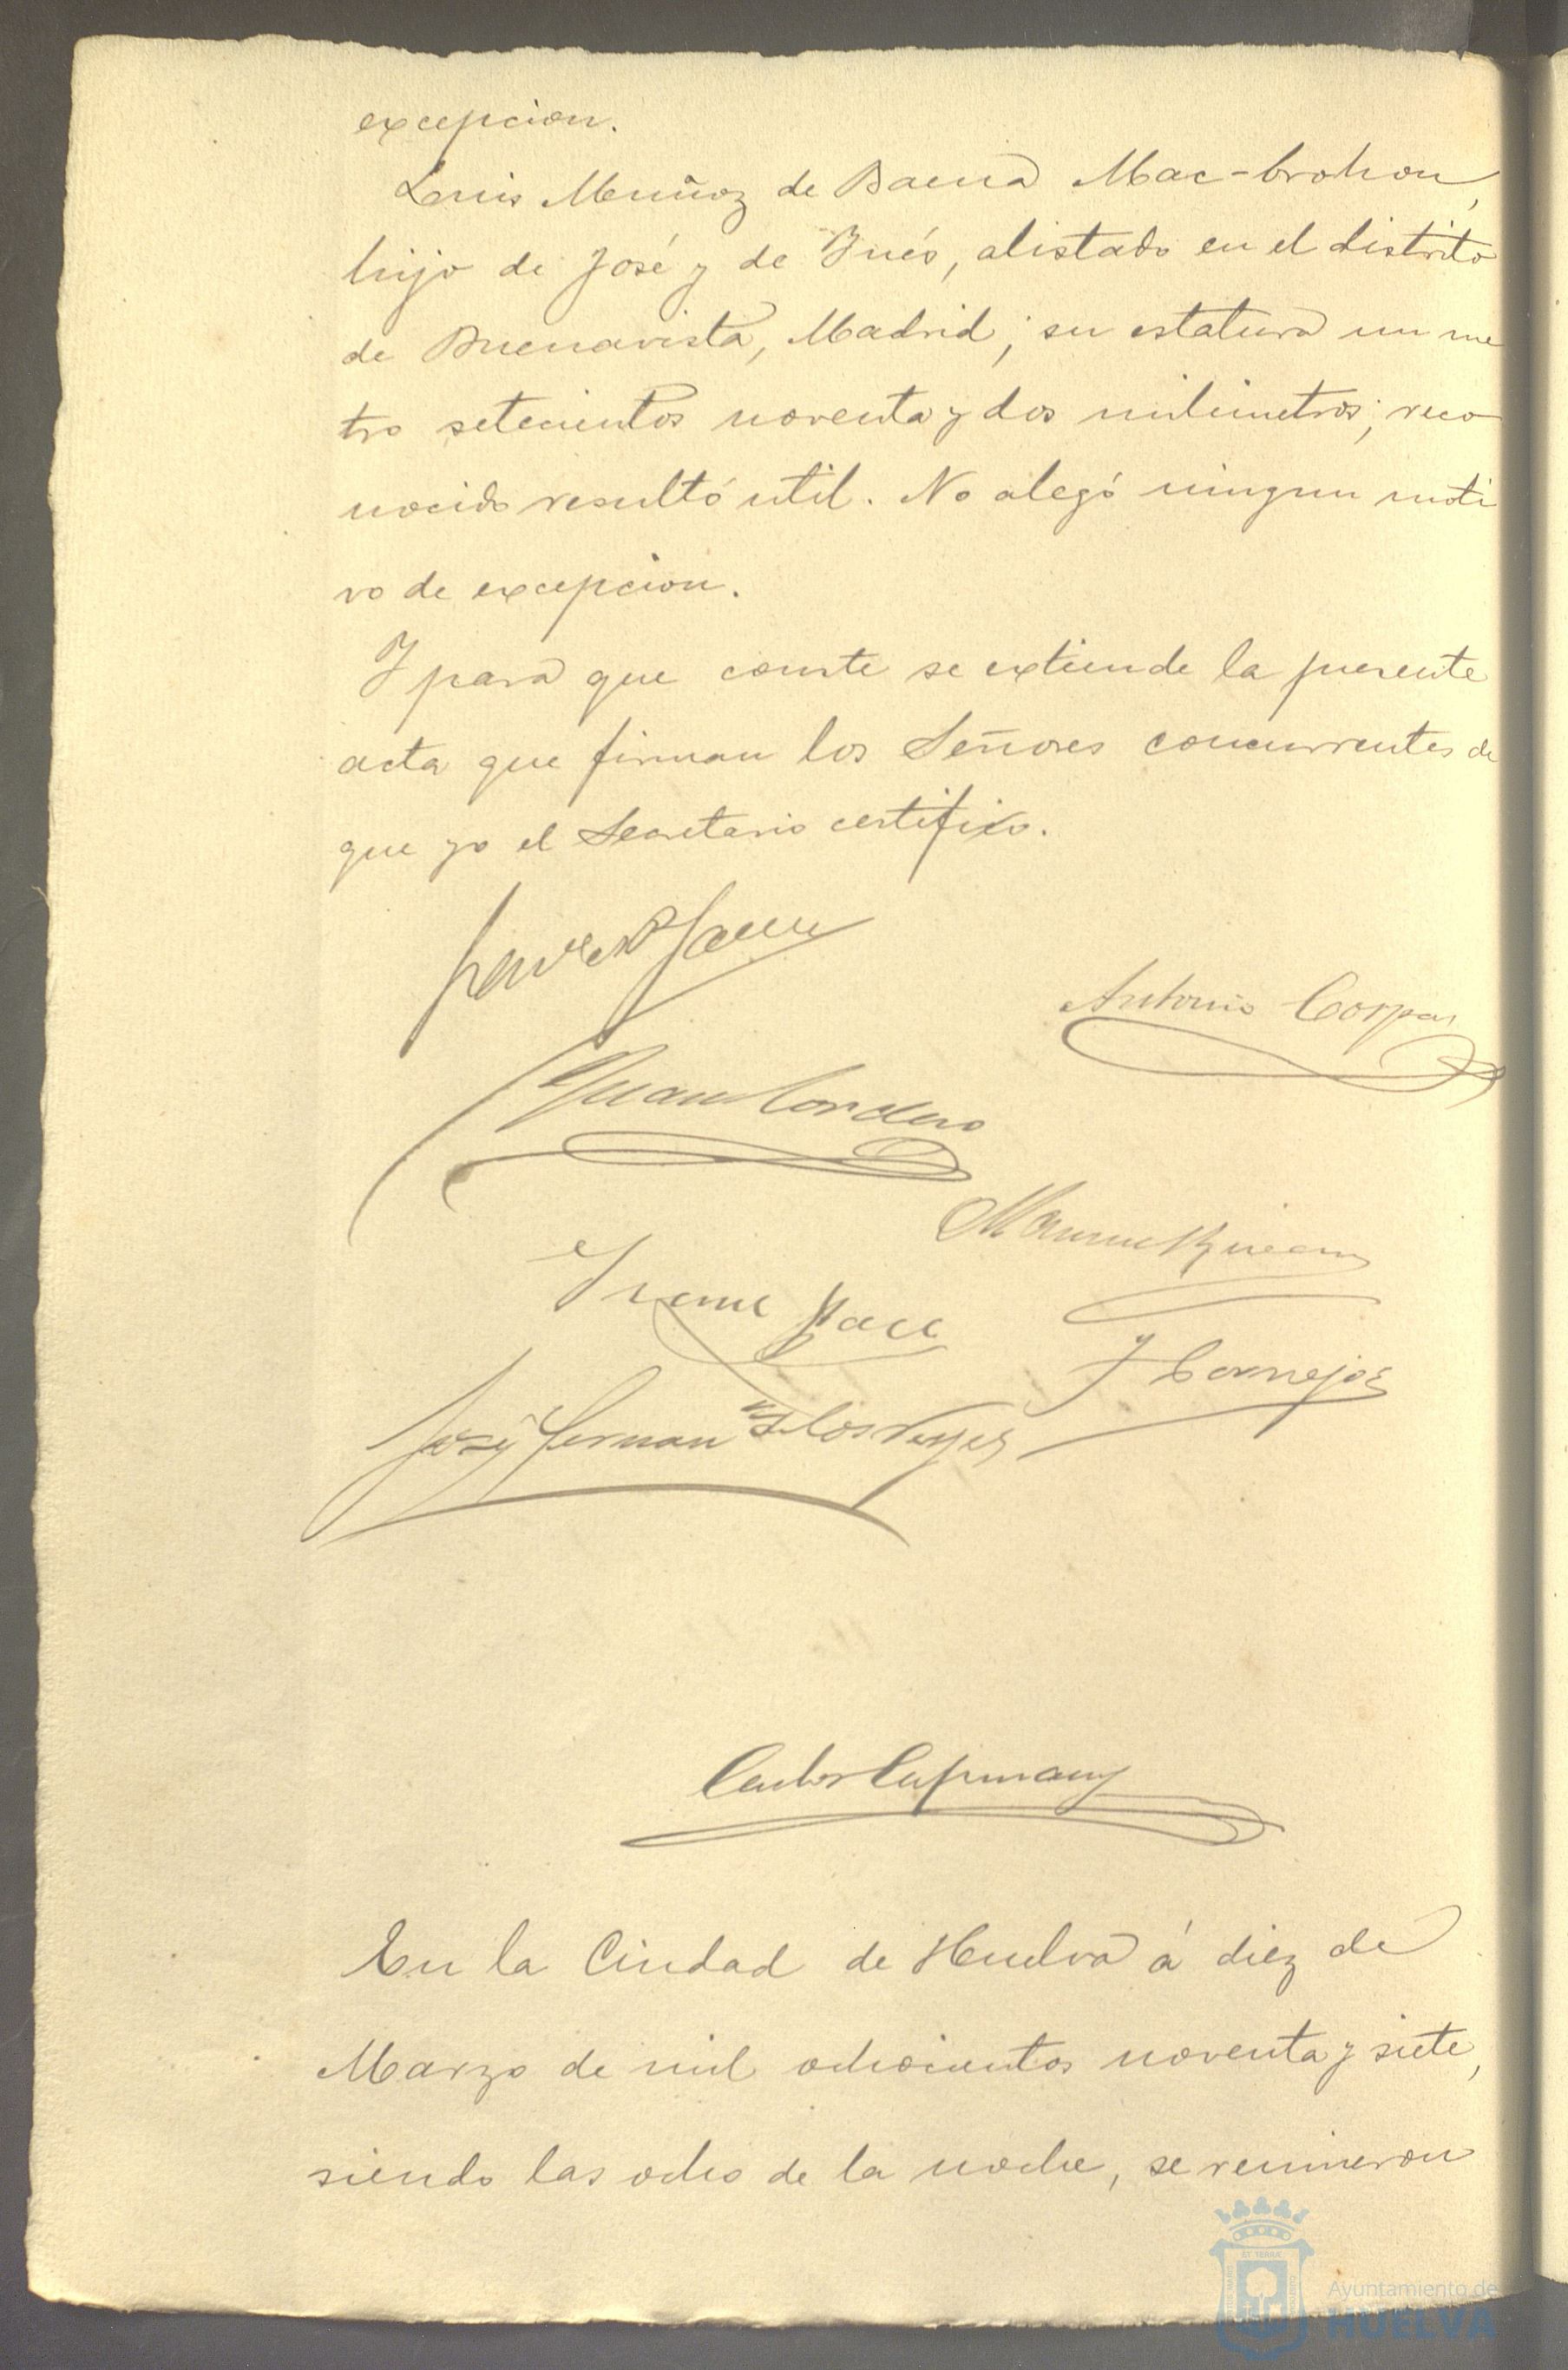 excepcion.
Luis Muñoz de Baena Mac-brohon,
hijo de José y de Ynés, alistado en el distrito
de Buenavista, Madrid; su estatura un me
tro setecientos noventa y dos milimetros; reco
nocido resultó util. No alegó ningun moti
vo de excepcion.
Y para que conste se extiende la presente
acta que firman los Señores concurrentes de
que yo el Secretario certifico.
Antonio Corpas
Juan Cordero
Manuel
J Cornejo
José Fernan de los Reyes
Carlos Capmany
En la Ciudad de Huelva á diez de
Marzo de mil ochocientos noventa y siete,
siendo las ocho de la noche, se reunieron
Ayuntamiento de
HUELVA